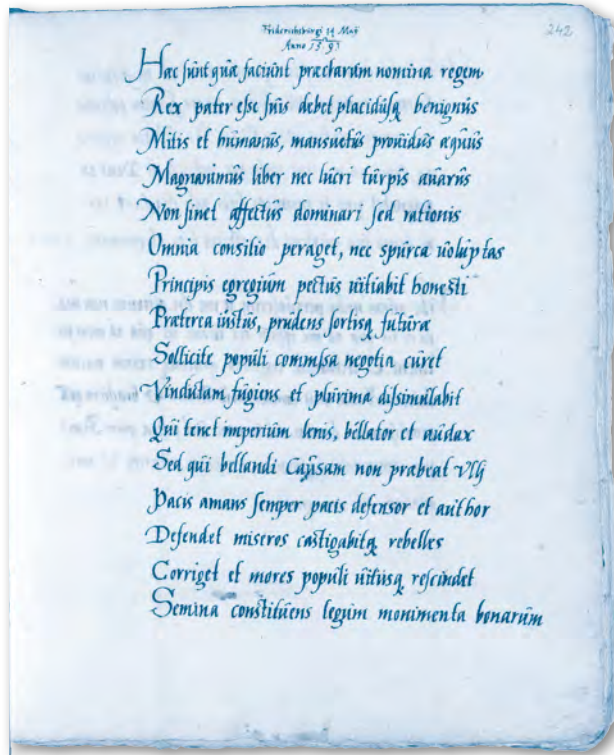 Friderichsburgi 14 Maij
Anno 1593
242
Hac sunt quæ faciunt præclarum nomina regem
Rex pater esse suis debet placidusq benignus
Mitis et humanus, mansuetus prouidus æquus
Magnanimus liber nec lucri turpis auarus
Non sinet affectus dominari sed rationis
Omnia consilio peraget, nec spurca uoluptas
Principis egregium pectus uitiabit honesti
Præterea iustus, prudens fortisq futura
Sollicite populi commissa negotia curet
Vindictam fugiens et plurima dissimulabit
Qui tenet imperium lenis, bellator et audax
Sed qui bellandi Causam non præbeat Vlli
Pacis amans semper pacis defensor et author
Defendet miseros castigabitq rebelles
Corriget et mores populi uitiisq rescindet
Semina constituens legum monimenta bonarum